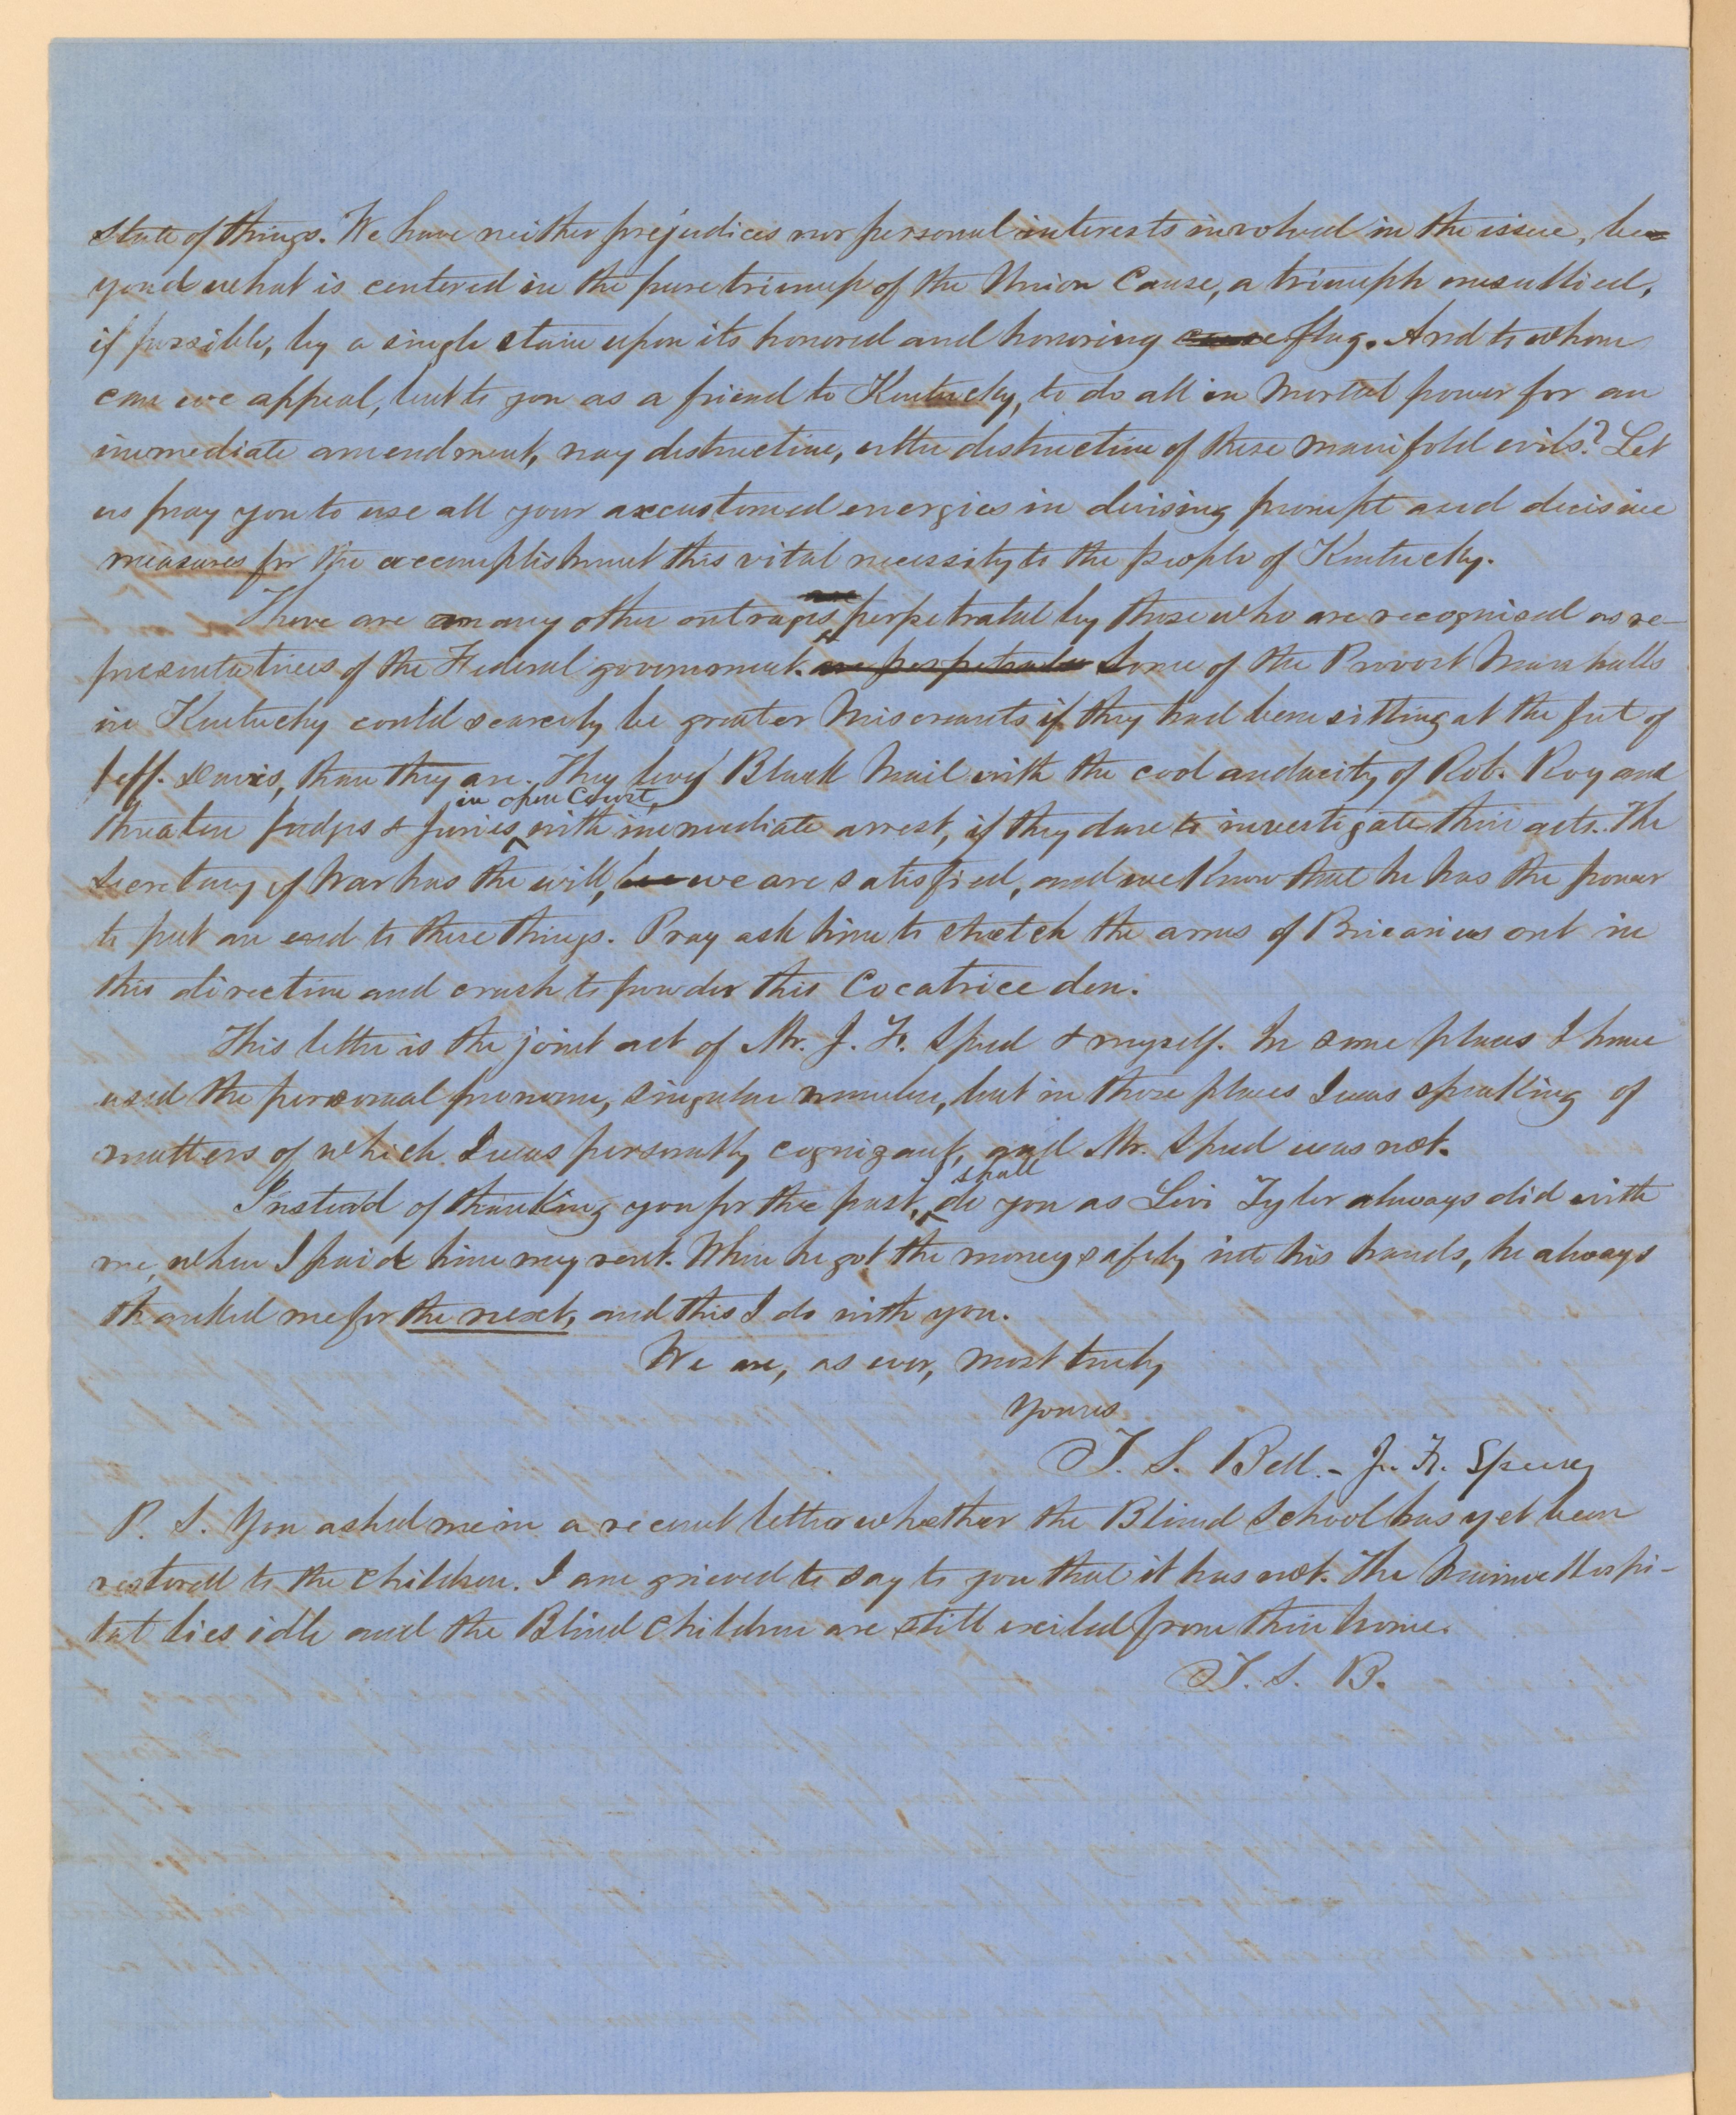 state of things. We have neither prejudices nor personal interests involved in the issue, be-
yond what is centered in the pure triumph of the Union Cause, a triumph unsullied,
if possible, by a single stain upon its honored and honoring cause flag. And to whom
can we appeal, but to you as a friend to Kentucky, to do all in mortal power for an
immediate amendment, nay destruction, utter destruction of these manifold evils? Let
us pray you to use all your accustomed energies in devising prompt and decisive
measures for the accomplishment this vital necessity to the people of Kentucky.
There are many other outrages perpetrated by those who are recognised as re-
presentatives of the Federal government. are perpetrated Some of the Provost Marshalls
in Kentucky could scarcely be greater miscreants if they had been sitting at the feet of
Jeff. Davis, than they are. They levy Black Mail with the cool audacity of Rob. Roy and
in open Court,
threaten judges & juries with immediate arrest, if they dare to investigate their acts. The
Secretary of War has the will, we are satisfied, and we know that he has the power
to put an end to these things. Pray ask him to stretch the arms of Briearius out in
this direction and crush to powder this Cocatrice den.
This letter is the joint act of Mr. J. F. Speed & myself. In some places I have
used the personal pronoun, singular number, but in those places I was speaking of
matters of which I was personally cognizant, and Mr. Speed was not.
shall
Instead of thanking you for the past, I do you as Levi Tyler always did with
me, when I paid him my rent. When he got the money safely into his hands, he always
thanked me for the next, and this I do with you.
We are, as ever, most truly
Yours
T. S. Bell. - J. F. Speed
P. S. You asked me in a recent letter whether the Blind School has yet been
restored to the children. I am grieved to say to you that it has not. The Hospi-
tal lies idle and the Blind children are still exiled from their home.
T. S. B.